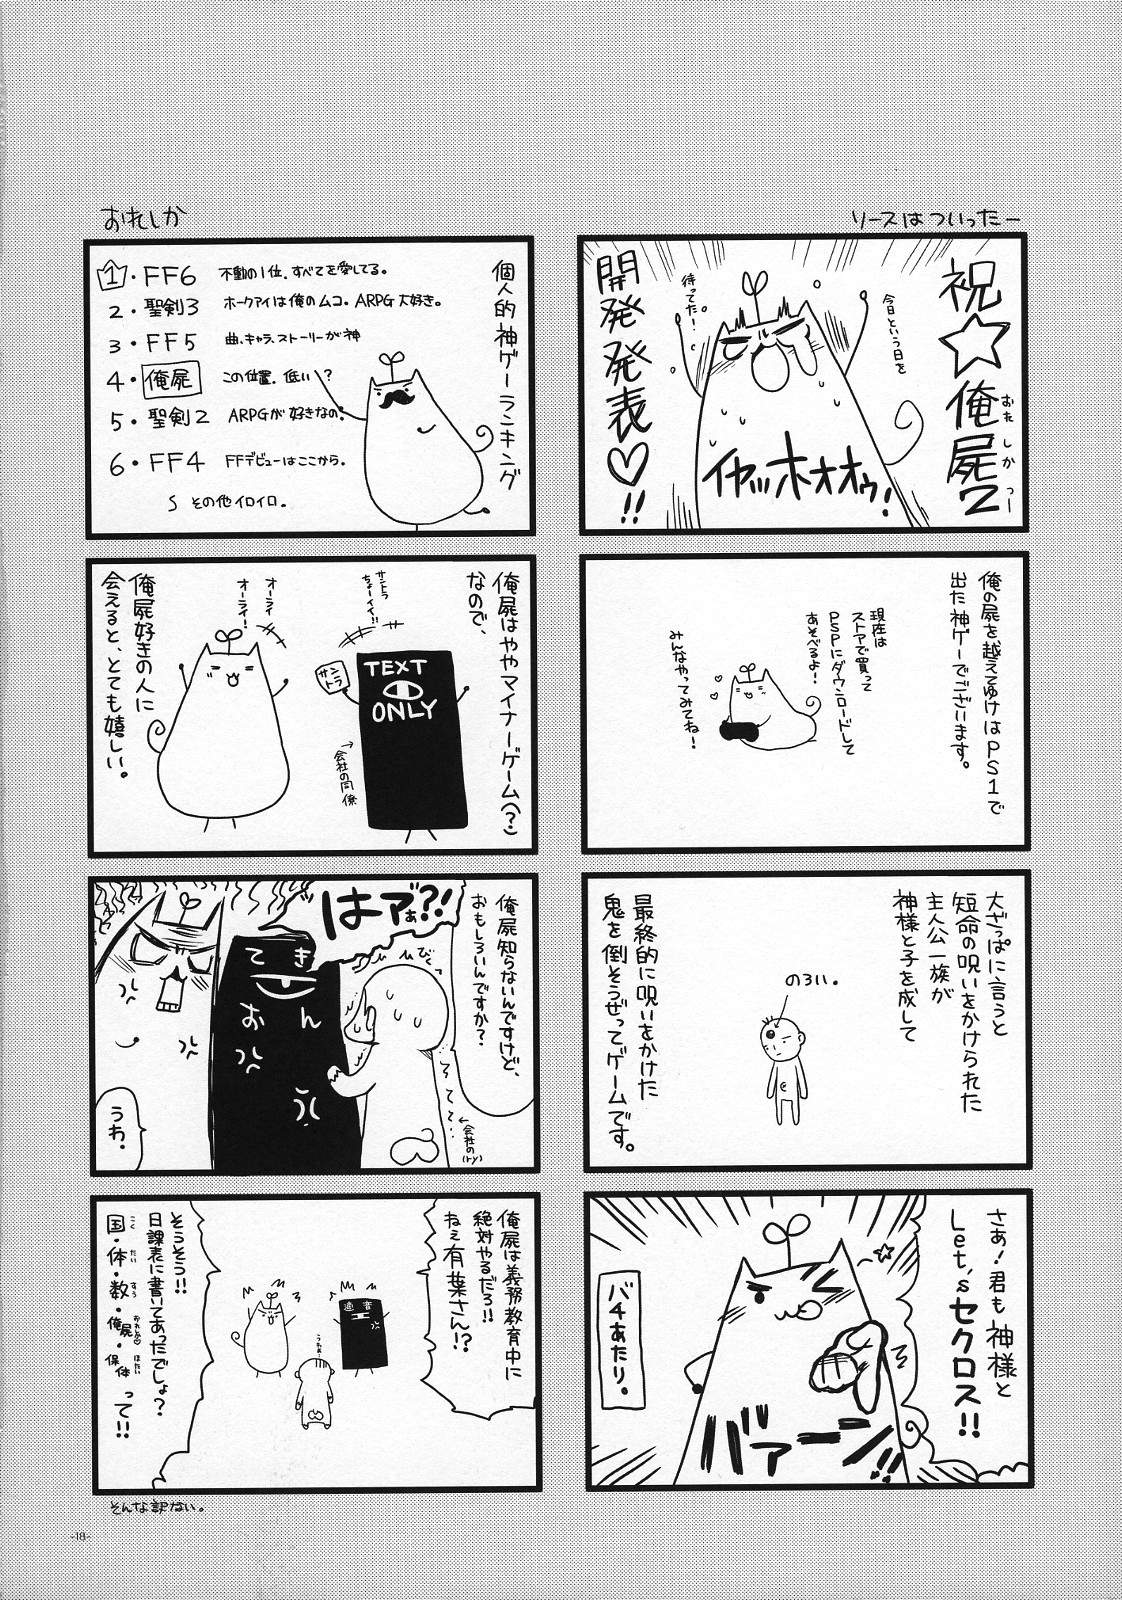 リースはついったー
祝☆俺屍2
おれしかつー
開発発表♡!!
今日という日を
待ってた!
イヤッッホォオオゥ!
俺の屍を越えてゆけはPS1で
出た神ゲーでございます。
現在は
ストアで買って
PSPにダウンロードして
あそべるよ!
みんなやってみてね!
大ざっぱに言うと
短命の呪いをかけられた
主人公一族が
神様と子を成して
のろい。
最終的に呪いをかけた
鬼を倒そうぜってゲームです。
さぁ!君も神様と
Let'sセクロス!!
バァーン!!
バチあたり。
おれしか
個人的神ゲーランキング
1・FF6 不動の1位、すべてを愛してる。
2・聖剣3 ホークアイは俺のムコ。ARPG大好き。
3・FF5 曲、キャラ、ストーリーが神
4・俺屍 この位置、低い?
5・聖剣2 ARPGが好きなの。
6・FF4 FFデビューはここから。
その他イロイロ。
俺屍はややマイナーゲーム(?)
なので、
サントラ
ちょーイイ!!
サントラ
TEXT
ONLY
→会社の同僚
オーライ
オーライ!
俺屍好きの人に
会えると、とても嬉しい。
俺屍知らないんですけど、
おもしろいんですか?
はァぁ?!
びくっ
てきおん
←会社の(ry)
うわ。
俺屍は義務教育中に
絶対やるだろ!!
ねぇ有葉さん!?
そうそう!!
日課表に書いてあったでしょ?
国・体・数・俺屍・保体って!!
こく たい すう おれしか ほたい
そんな訳ない。
-18-